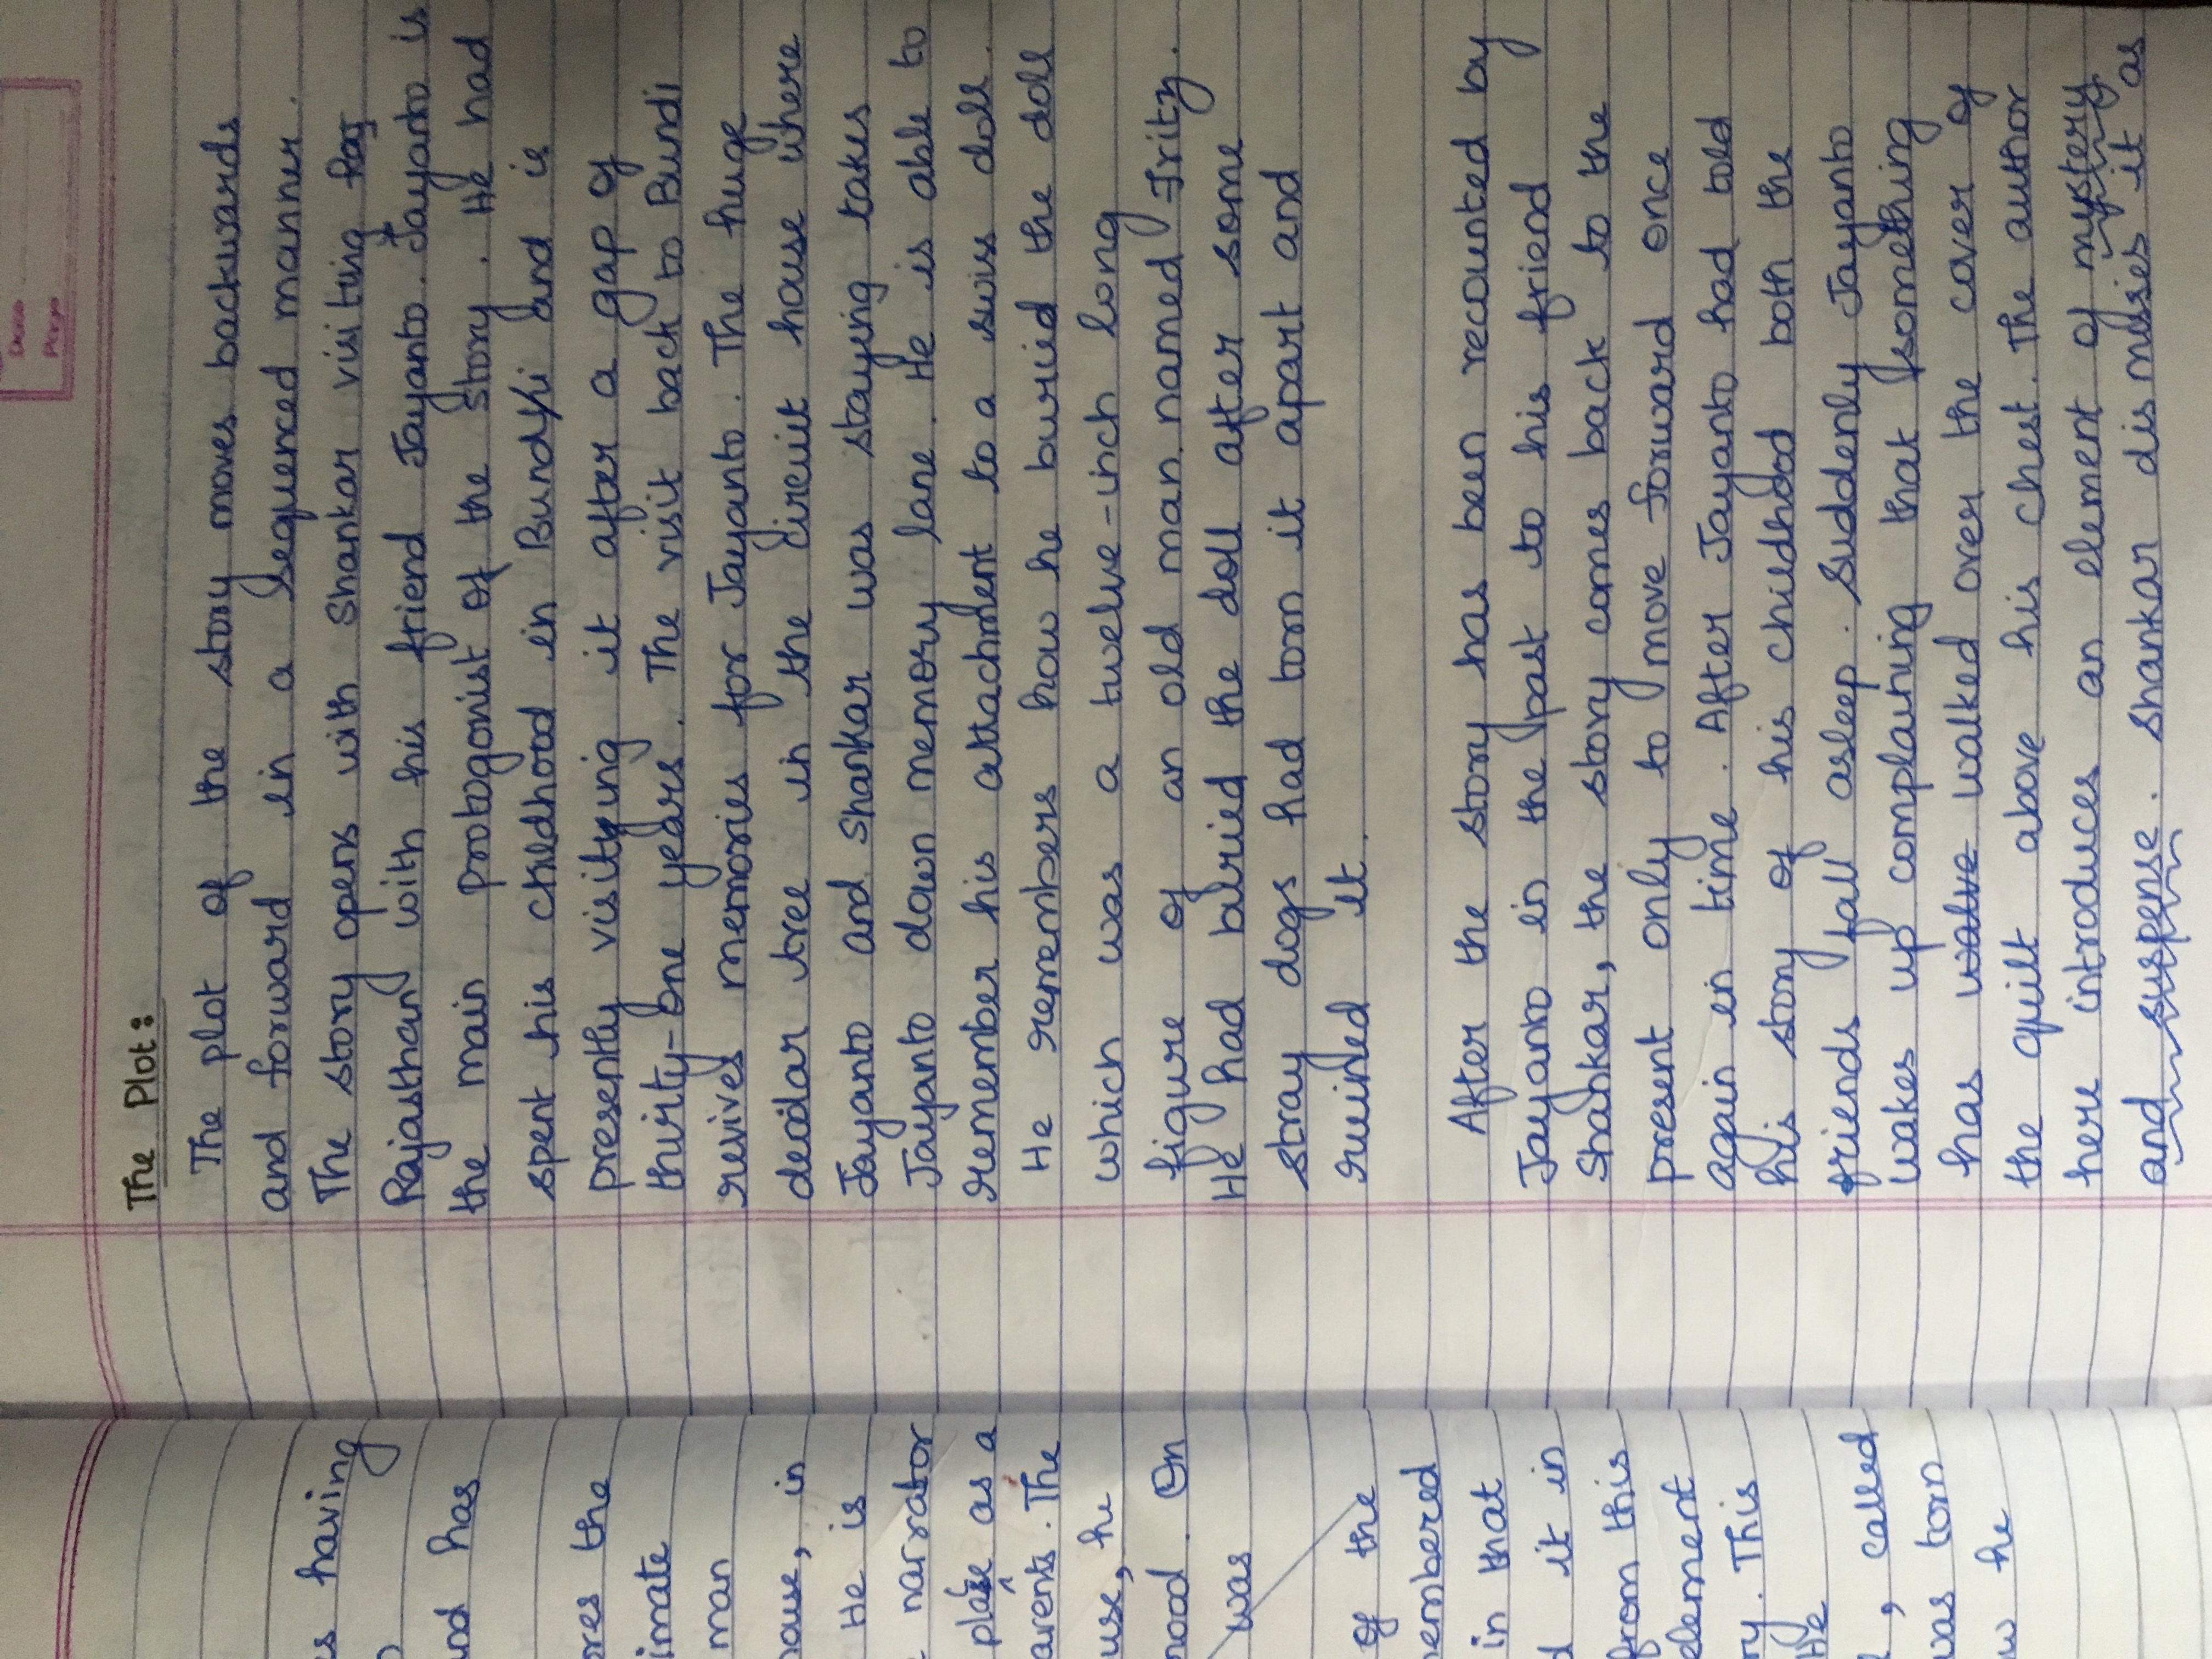 s having
and has
ores the
imate
man
house, in
He is
narrator
place as a
arents. The
use, he
hood. On
was
of the
membered
in that
d it in
from this
element
ry. This
He
l, called
was torn
w he
Date
Page
The Plot:
The plot of the story moves backwards
and forward in a sequenced manner.
The story opens with Shankar visiting Raj
Rajasthan with his friend Jayanto. Jayanto is
the main protogonist of the story. He had
spent his childhood in Bundi and is
presently visitying it after a gap of
thirty-one years. The visit back to Bundi
revives memories for Jayanto. The huge
deodar tree in the circuit house where
Jayanto and Shankar was staying takes
Jayanto down memory lane. He is able to
remember his attachment to a swiss doll.
He remembers how he buried the doll
which was a twelve-inch long
figure of an old man named Fritz.
He had buried the doll after some
stray dogs had torn it apart and
ruined it.
After the story has been recounted by
Jayanto in the past to his friend
Shankar, the story comes back to the
present only to move forward once
again in time. After Jayanto had told
his story of his childhood both the
friends fall asleep. Suddenly Jayanto
wakes up complaining that something
has walve walked over the cover of
the quilt above his chest. The author
here introduces an element of mystery
and suspense. Shankar dismisses it as